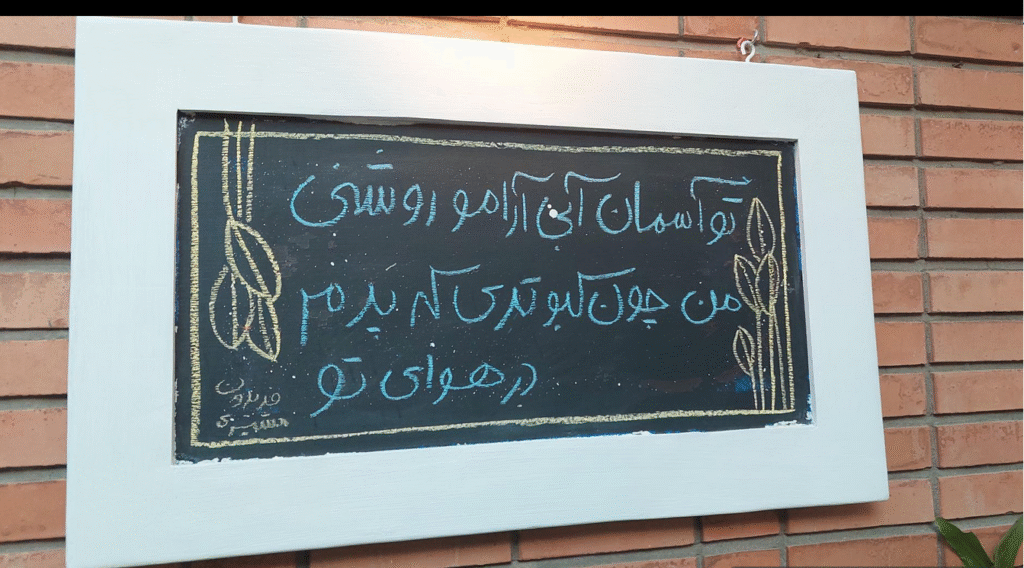 تو آسمان آبی آرامو روشنی
من چون کبوتری که پرم
در هوای تو
فریدون
مشیری